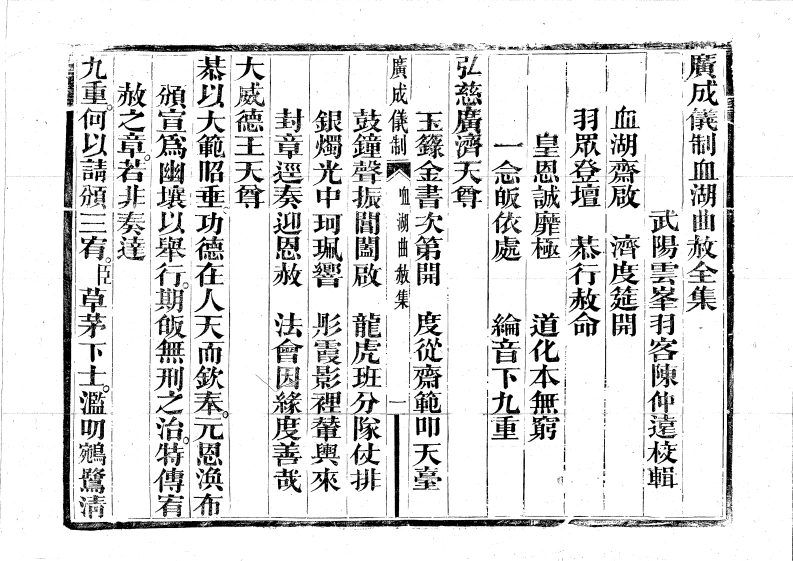 廣成儀制血湖曲赦全集
武陽雲峯羽客陳仲遠校輯
血湖齋啟　濟度筵開
羽眾登壇　恭行赦命
皇恩誠靡極　道化本無窮
一念皈依處　綸音下九重
弘慈廣濟天尊
玉籙金書次第開　度從齋範叩天臺
廣成儀制　血湖曲赦集　一
鼓鐘聲振閶闔啟　龍虎班分隊仗排
銀燭光中珂珮響　彤霞影裡輦輿來
封章逕奏迎恩赦　法會因緣度善哉
大威德王天尊
恭以大範昭垂。功德在人天而欽奉。元恩渙布
頒宣爲幽壤以舉行。期皈無刑之治。特傳宥
赦之章。若非奏達
九重。何以請頒三宥。臣　草茅下士。濫叨鵷鷺清